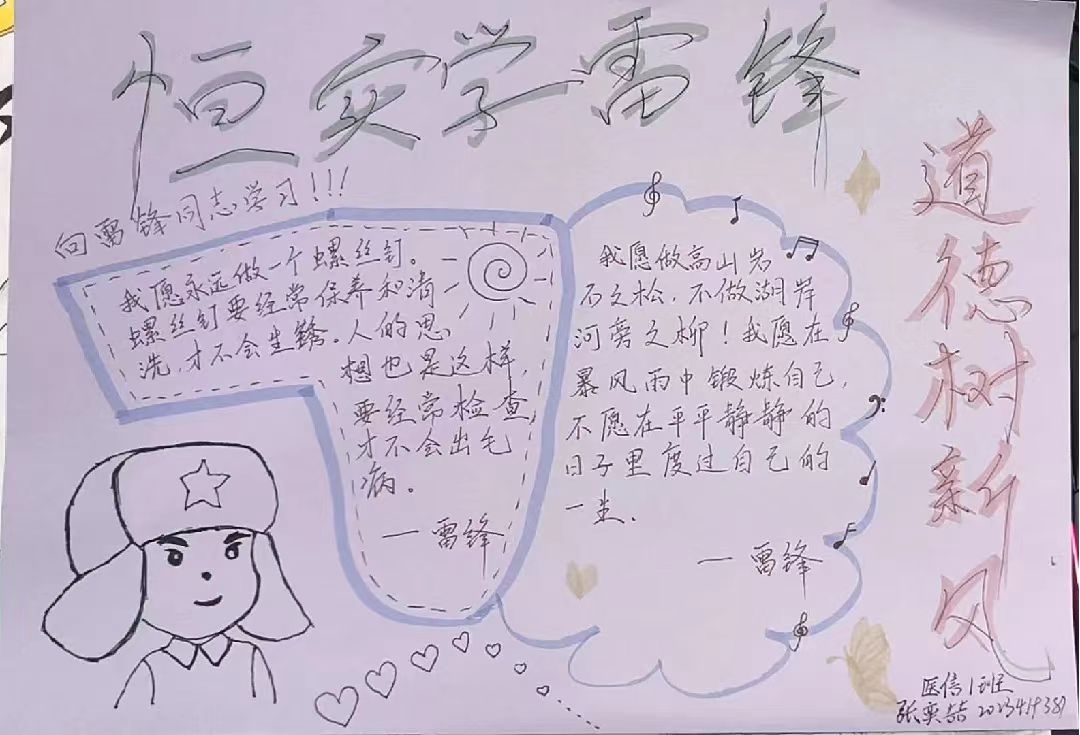 恒实学雷锋
向雷锋同志学习!!!
我愿永远做一个螺丝钉。
螺丝钉要经常保养和清
洗,才不会生锈。人的思
想也是这样,
要经常检查
才不会出毛
病。
—雷锋
我愿做高山岩
石之松,不做湖岸
河旁之柳!我愿在
暴风雨中锻炼自己,
不愿在平平静静的
日子里度过自己的
一生.
—雷锋
道德树新风
医信1班
张奕喆